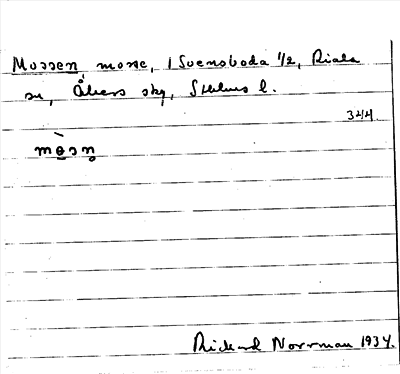 Mossen, mosse, 1 Svensboda 1/2, Riala
sn, Åkers skg, Sthlms l.
344.
mὸ̱sn̥
Rickard Norrman 1934.